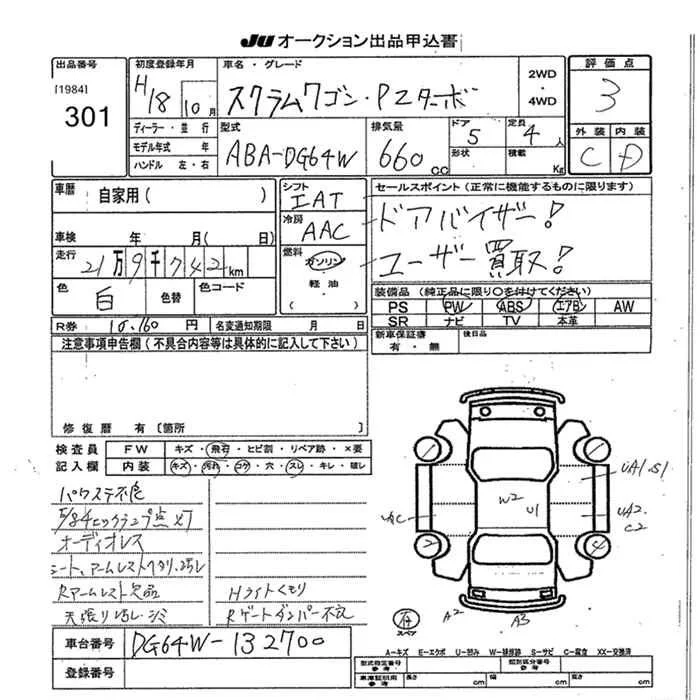 JU オークション出品申込書
出品番号
[1984]
301
初度登録年月
H18 10月
ディーラー・並行
モデル年式 年
ハンドル 左・右
車名・グレード
スクラムワゴン・PZターボ
2WD
・
4WD
評価点
3
型式
ABA-DG64W
排気量
660cc
ドア
5
定員
4人
形状
積載
Kg
外装
C
内装
D
車歴
自家用( )
車検 年 月( 日)
走行
21万9千742km
色
白
色替
色コード
R券 10.160円
名変通知期限 月 日
シフト
IAT
冷房
AAC
燃料
ガソリン
・
軽油
( )
セールスポイント(正常に機能するものに限ります)
ドアバイザー!
ユーザー買取!
装備品(純正品に限り○を付けてください)
PS PW ABS エアB AW
SR ナビ TV 本革
新車保証書
有・無
後日品
注意事項申告欄(不具合内容等は具体的に記入して下さい)
修復歴 有〔箇所 〕
検査員
記入欄
FW キズ・飛石・ヒビ割・リペア跡・×要
内装 キズ・汚れ・コゲ・穴・スレ・キレ・破レ
パワステ不良
オーディオレス
Rアームレスト欠品
天張り汚レ・シミ
Hライトくもり
Rゲートダンパー不良
車台番号 DG64W-132700
登録番号
UA1.S1
W2
U1
UA2.
C2
2
4
A2
A3
スペア
A-キズ E-エクボ U-凹み W-補修跡 S-サビ C-腐食 XX-交換済
型式指定番号
参考
類別区分番号
参考
車庫証明用
参考
長さ cm
幅 cm
高さ cm